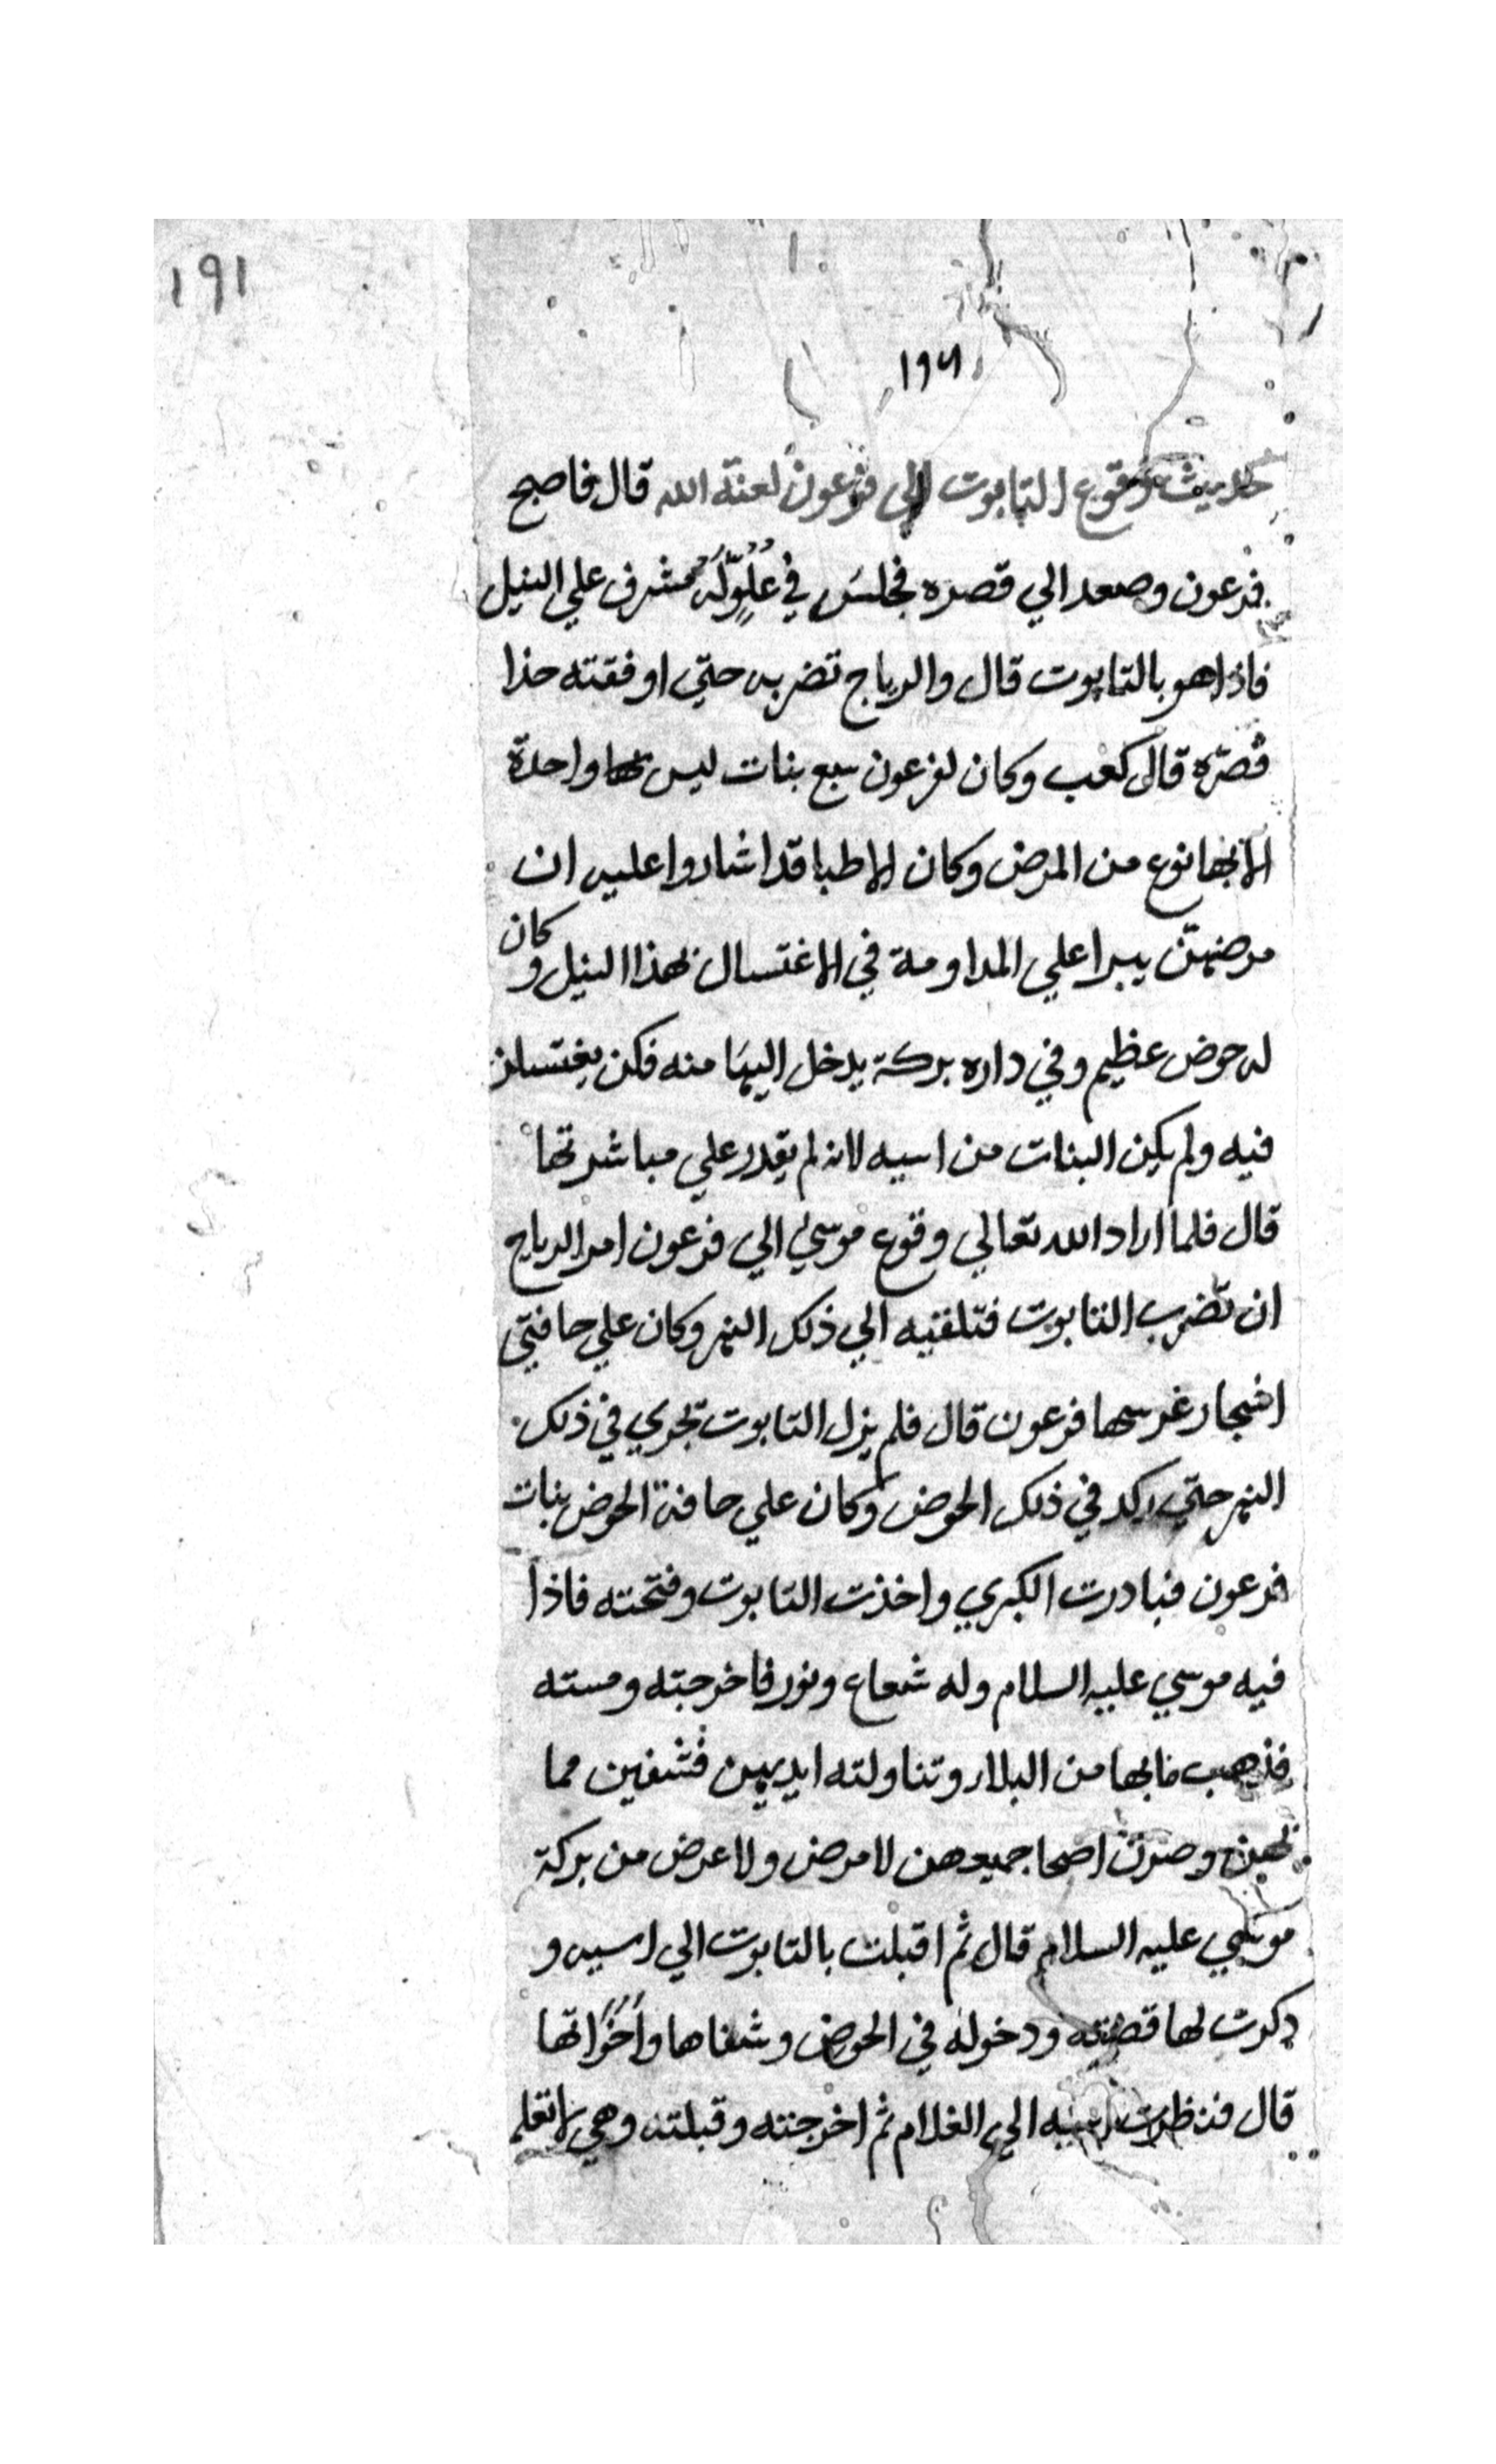 ١٩١
١٩٦
حديث وقوع التابوت الى فرعون لعنة الله قال فاصبح
فرعون وصعد الي قصره فجلس في علو له مشرف علي النيل
فاذا هو بالتابوت قال والرياح تضربه حتي اوقفته حذا
قصره قال كعب وكان لفرعون سبع بنات ليس واحدة
الا بها نوع من المرض وكان الاطبا قد اشاروا عليه ان
مرضهن يبرا علي المداومة في الاغتسال بهذا النيل وكان
له حوض عظيم وفي داره بركة يدخل اليها منه فكن يغتسلن
فيه ولم يكن البنات من اسيه لانه لم يقدر علي مباشرتها
قال فلما اراد الله تعالي وقوع موسي الي فرعون امر الرياح
ان تضرب التابوت فتلقيه الي ذلك النهر وكان علي حافتي
اشجار غرسها فرعون قال فلم يزل التابوت تجري في ذلك
النهر حتي ركد في ذلك الحوض وكان علي حافة الحوض بنات
فرعون فبادرت الكبري واخذت التابوت وفتحته فاذا
فيه موسي عليه السلام وله شعاع ونور فاخرجته ومسته
فذهب مابها من البلا وتناولته ايديهن فشفين مما
بهن وصرن اصحا جميعهن لا مرض ولا عرض من بركة
موسي عليه السلام قال ثم اقبلت بالتابوت الي اسيه و
ذكرت لها قصته ودخوله في الحوض وشفاها واخواتها
قال فنظرت اسيه الي الغلام ثم اخرجته وقبلته وهي لا تعلم